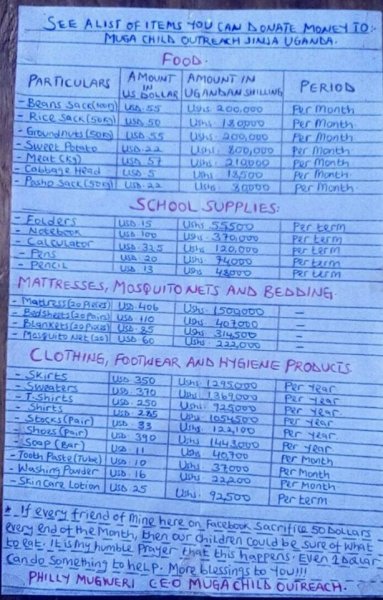 SEE A LIST OF ITEMS YOU CAN DONATE MONEY TO:-
MUGA CHILD OUTREACH JINJA UGANDA.
FOOD.
PARTICULARS AMOUNT IN US DOLLAR AMOUNT IN UGANDAN SHILLING PERIOD
- Beans Sack(50Kg) USD. 55 Ushs 200,000 Per Month
- Rice Sack(50Kg) USD. 50 Ushs 180,000 Per Month
- Groundnuts(50Kg) USD. 55 Ushs 200,000 Per Month.
- Sweet Potato USD. 22 Ushs 800,000 Per Month
- Meat (Kg) USD. 57 Ushs 210,000 Per Month
- Cabbage Head USD. 5 Ushs 18,500 Per Month
- Posho Sack(50Kg) USD. 22 Ushs 80,000 Per Month
SCHOOL SUPPLIES:
- Folders USD 15 Ushs 55,500 Per term
- Notebook USD 100 Ushs 370,000 Per term
- Calculator USD 32.5 Ushs 120,000 Per term
- Pens USD 20 Ushs 74,000 Per term
- Pencil USD 13 Ushs 48,000 Per term
MATTRESSES, MOSQUITO NETS AND BEDDING
- Mattress(20 Pieces) USD 406 Ushs 1,500,000 —
- Bedsheets(20 Pairs) USD 110 Ushs 407,000 —
- Blankets(20 Pieces) USD 85 Ushs 314,500 —
- Mosquito Net(20) USD 60 Ushs 222,000 —
CLOTHING, FOOTWEAR AND HYGIENE PRODUCTS
- Skirts USD 350 Ushs 1,295,000 Per Year
- Sweaters USD 370 Ushs 1,369,000 Per Year
- T-Shirts USD 250 Ushs 925,000 Per Year.
- Shirts USD 285 Ushs 1,054,500 Per Year.
- Stocks(Pair) USD 33 Ushs 122,100 Per Year
- Shoes(Pair) USD 390 Ushs 1,443,000 Per Year
- Soap (Bar) USD 11 Ushs 40,700 Per Month
- Tooth Paste(Tube) USD 10 Ushs 37,000 Per Month
- Washing Powder USD 16 Ushs 22,200 Per Month
- Skin Care Lotion USD 25 Ushs 92,500 Per term
* If every friend of mine here on Facebook Sacrifice 50 Dollars
every end of the Month, then our children could be sure of what
to eat. It is my humble Prayer that this happens. Even 1 Dollar
can do Something to help. More blessings to You!!!
PHILLY MUGWERI CEO MUGA CHILD OUTREACH.